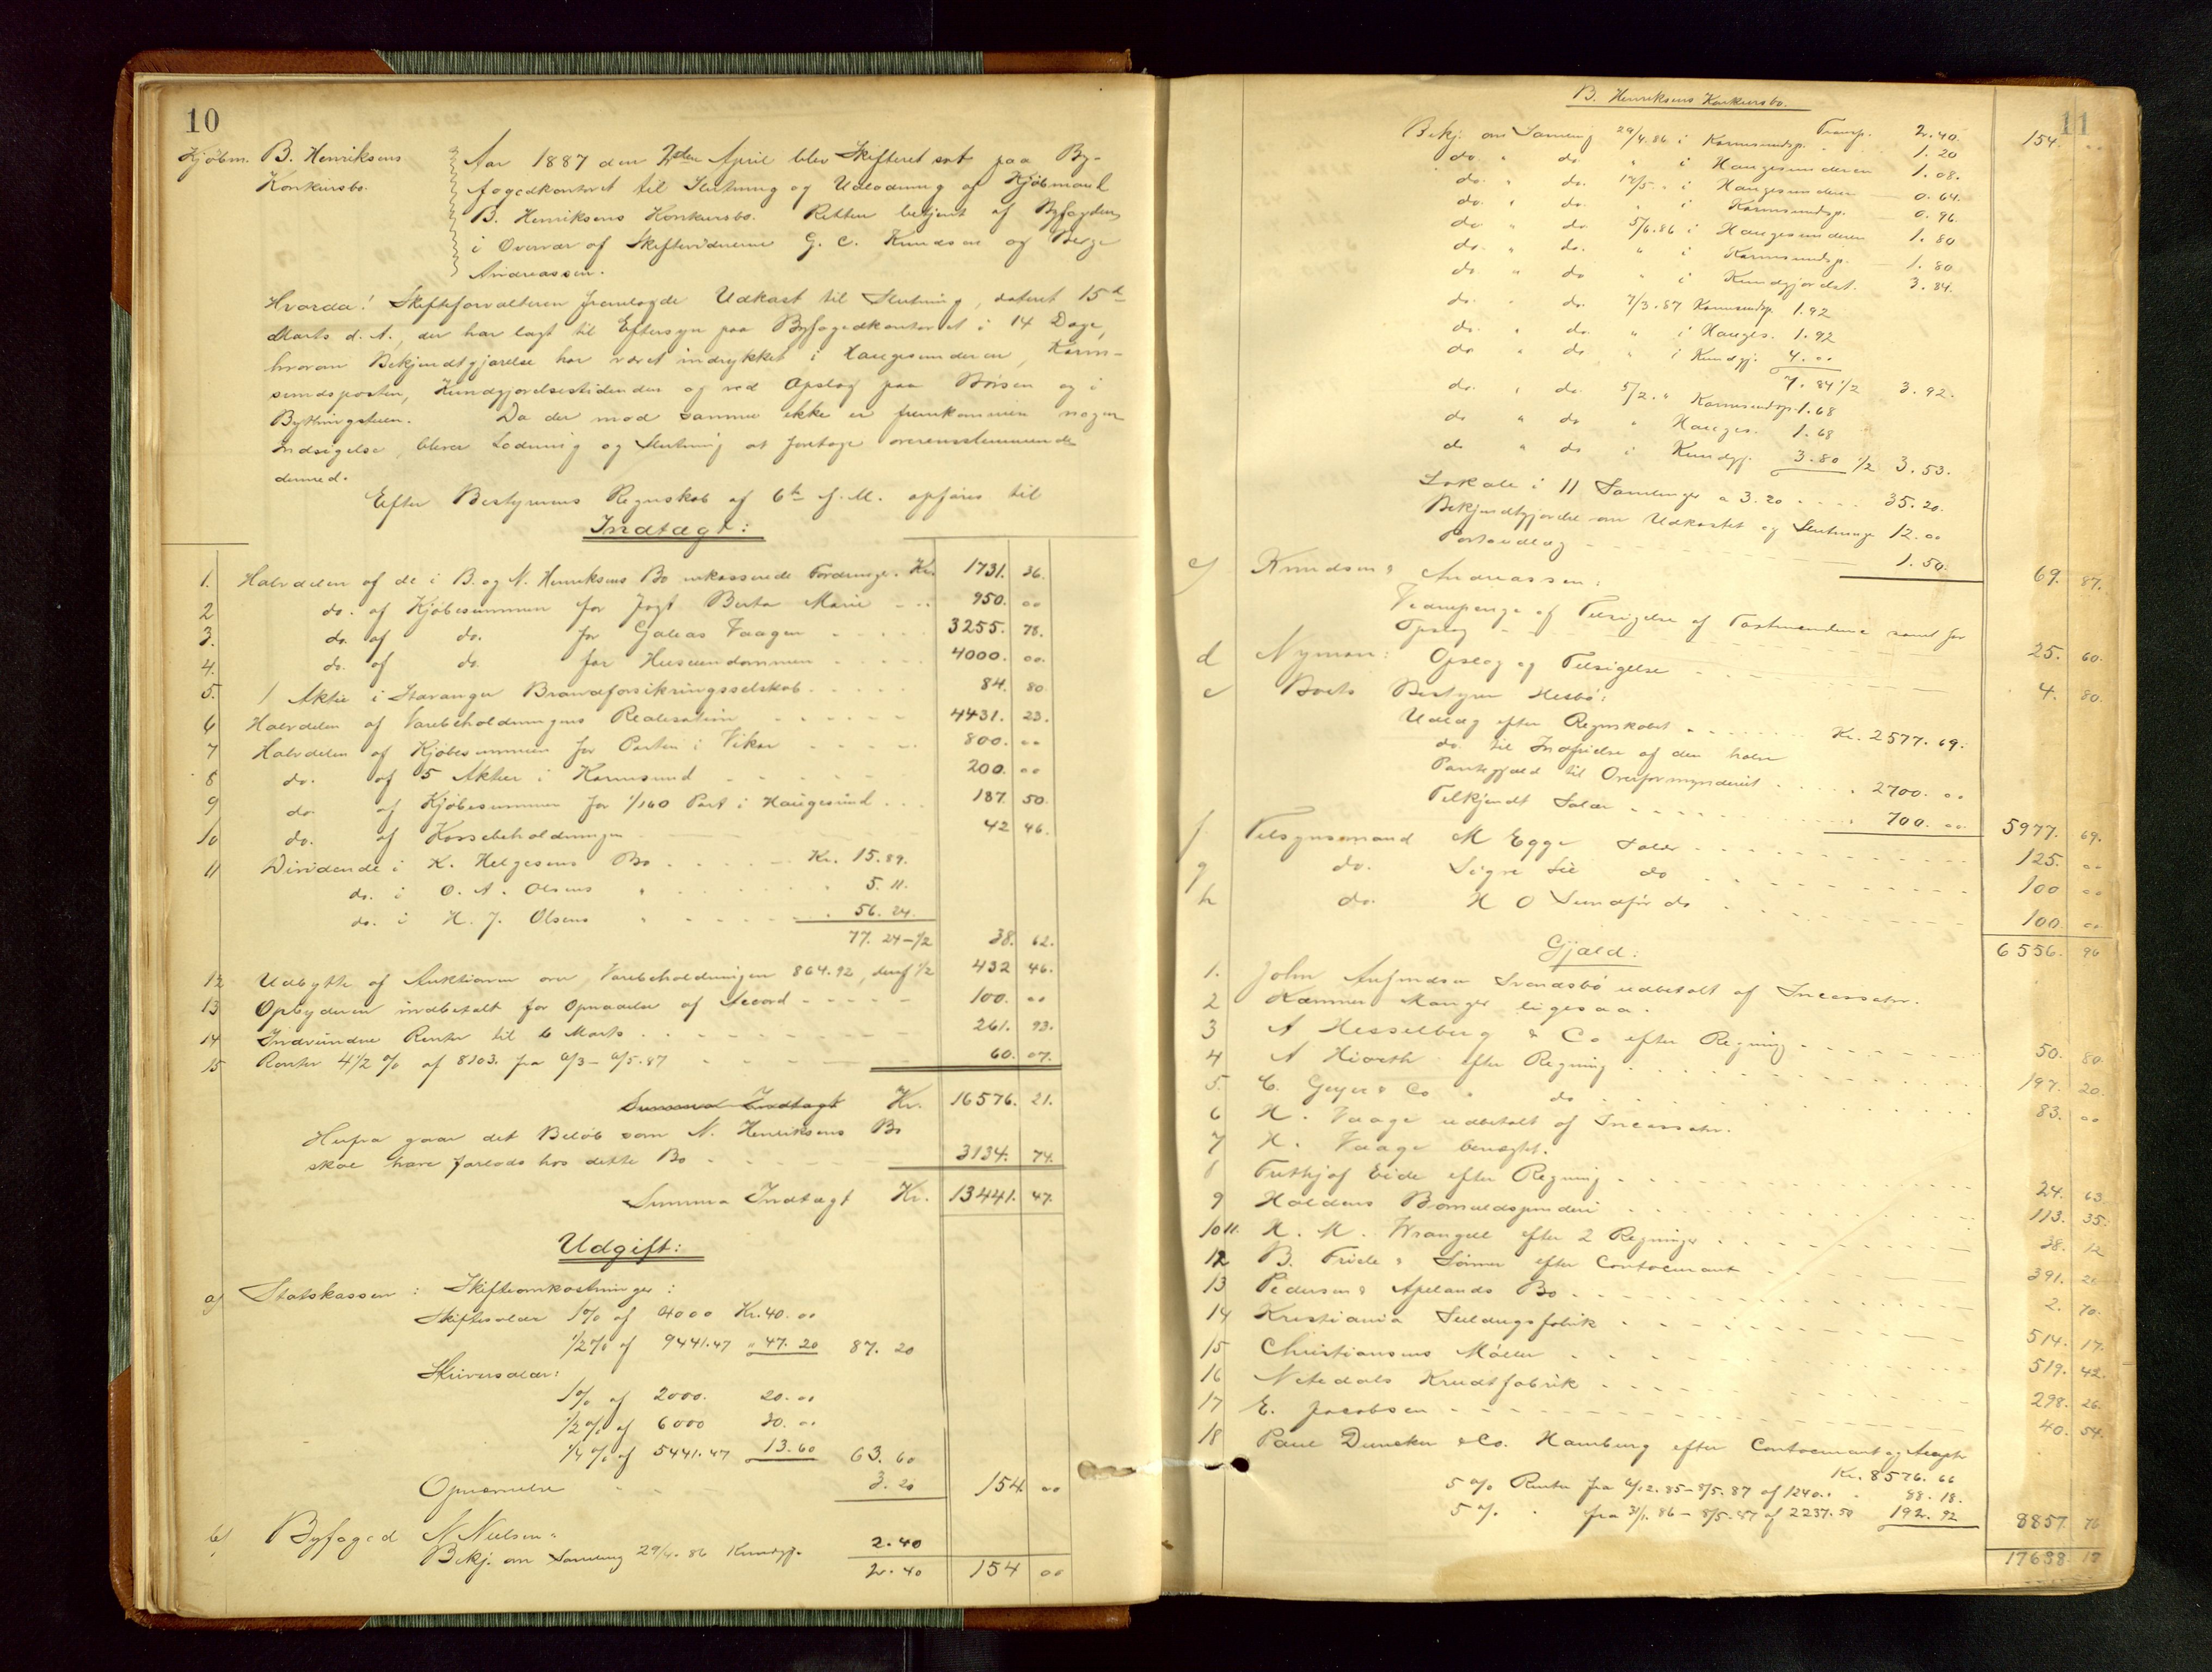 10
Kjøbm. B. Henriksens Konkursbo.
Aar 1887 den 2den April blev Skifteret sat paa By-
fogedkontoret til Slutning og Udlodning af Kjøbmand
B. Henriksens Konkursbo. Retten betjent af Byfogden
i Overvær af Skiftevidnerne G. C. Knudsen og Berge
Andreassen.
Hvorda! Skifteforvalteren fremlagde Udkast til Slutning, dateret 15de
Marts d. A., der har lagt til Eftersyn paa Byfogedkontoret i 14 Dage,
hvorom Bekjendtgjørelse har været indrykket i Haugesunderen, Karm-
sundsposten, Kundgjørelsestidenden og ved Opslag paa Børsen og i
Bythingstuen. Da der mod samme ikke er fremkommen nogen
Indsigelse, blever Lodning og Slutning at foretage overensstemmende
dermed.
Efter Bestyrerens Regnskab af 6te f. M. opføres til
Indtægt:
1. Halvdelen af de i B. og N. Henriksens Bo inkasserede Fordringer. Kr. 1731. 36.
2 do. af Kjøbesummen for Jagt Berta Marie 950. 00
3. do. af do. for Galeas Vaagen 3255. 78.
4. do. af do. for Huseiendommen 4000. 00.
5. 1 Aktie i Stavanger Brandforsikringsselskab 84. 80
6 Halvdelen af Varebeholdningens Realisation 4431. 23.
7 Halvdelen af Kjøbesummen for Parten i Vikar 800. 00
8 do. af 5 Aktier i Karmsund 200. 00
9 do. af Kjøbesummen for 1/160 Part i Haugesund 187. 50.
10 do. af Kassebeholdningen 42 46.
11 Dividende i K. Helgesens Bo Kr. 15.89.
do. i O. A. Olsens " 5. 11.
do. i H. J. Olsens " 56. 24.
77. 24 - 1/2 38. 62.
12 Udbytte af Auktionen over Varebeholdningen 864.92, deraf 1/2 432 46.
13 Opbyderen indbetalt for Opnaaelse af Accord 100. 00
14 Indvundne Renter til 6 Marts 261. 93.
15 Renter 4 1/2 % af 8103. fra 6/3 - 6/5.87 60. 07.
Summa Indtægt Kr. 16576. 21.
Herfra gaar det Beløb som N. Henriksens Bo
skal have forlods hos dette Bo 3134. 74.
Summa Indtægt Kr. 13441. 47.
Udgift:
a) Statskassen: Skifteomkostninger:
Skiftesalær 1% af 4000 Kr. 40. 00
1/2 % af 9441.47 " 47. 20 87. 20
Skriversalær:
1% af 2000. 20. 00
1/2 % af 6000 30. 00
1/4 % af 5441.47 13.60 63. 60
Opnævnelse 3. 20 154 00
b) Byfoged N Nielsen:
Bekj. om Samling 29/4. 86 Kundgj. 2.40
2. 40 154 00
11
B. Henriksens Konkursbo.
Transp. 2.40. 154. 00
Bekj. om Samling 29/4.86 i Karmsundsp. 1.20
do. " do. " i Haugesunderen 1.08.
do. " do. 14/5. " i Haugesunderen 0.64.
do. " do. " i Karmsundsp. 0.96.
do " do. 5/6.86 i Haugesunderen 1. 80
do. " do. " i Karmsundsp. 1. 80
do. " do " i Kundgjørelst. 3. 84.
do. " do. 7/3.87 Karmsundsp. 1.92
do. " do. " i Hauges. 1.92
do " do " i Kundgj. 4. 00
7. 84 1/2 3. 92.
do. " do. 5/2. " Karmsundsp. 1.68
do " do " Hauges. 1.68
do " do i Kundgj. 3.80 1/2 3. 53.
Lokale i 11 Samlinger a 3.20 35. 20.
Bekjendtgjørelse om Udkastet og Slutninge 12. 00
Portoudlæg 1. 50. 69. 87.
c) Knudsen & Andreassen:
Vidnepenge af Tilsigelse af Taxtmændene samt for
Opslag 25. 60.
d Nyman: Opslag og Tilsigelse 4. 80.
e Boets Bestyrer Hesbø:
Udlæg efter Regnskabet Kr. 2577. 69.
do. til Indfrielse af den halve
Pantegjæld til Overformynderiet " 2700. 00
Tilkjendt Salær " 700. 00 5977. 69.
f Tilsynsmand M Egge Salær 125. 00
g do. Sigv Lie do 100 00
h do. H O Sundfør do 100. 00
6556. 96
Gjæld:
1. John Aufindsen Svendsbø udbetalt af Incassator.
2 Kæmner Manger ligesaa.
3 A Hesselberg & Co efter Regning 50. 80.
4 A Hiorth efter Regning 197. 20.
5. C. Geyer & Co " do 83. 00
6 H. Vaage udbetalt af Incassator.
7 H. Vaage benægtet.
8 Frithjof Eide efter Regning 24. 63
9 Haldens Bomuldspinderi 113. 35.
10 11. H. M. Wrangell efter 2 Regninger 38. 12
12 B. Friele & Sønner efter Contocurant 391. 21
13 Pedersen & Apelands Bo 2. 70.
14 Kristiania Seildugsfabrik 514. 17.
15 Christiansens Møller 519. 42.
16 Nitedals Krudtfabrik 298. 26.
17 E. Jacobsen 40. 54.
18 Paul Duncker & Co. Hamburg efter Contocurant og Accepter
Kr. 8576. 66
5 % Renter fra 6/12.85 - 8/5.87 af 1240. " 88. 18.
5 % " fra 31/1.86 - 8/5.87 af 2237.50 192. 92 8857. 76
17688. 12